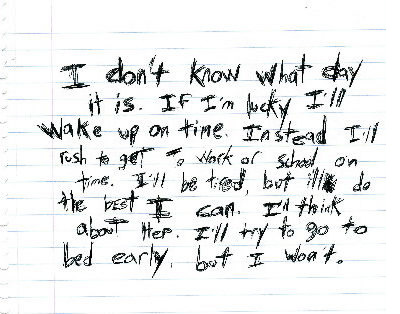 I don't know what day
it is. If I'm lucky I'll
wake up on time. Instead I'll
rush to get to work or school on
time. I'll be tired, but i'll do
the best I can. I'll think
about Her. I'll try to go to
bed early, but I won't.